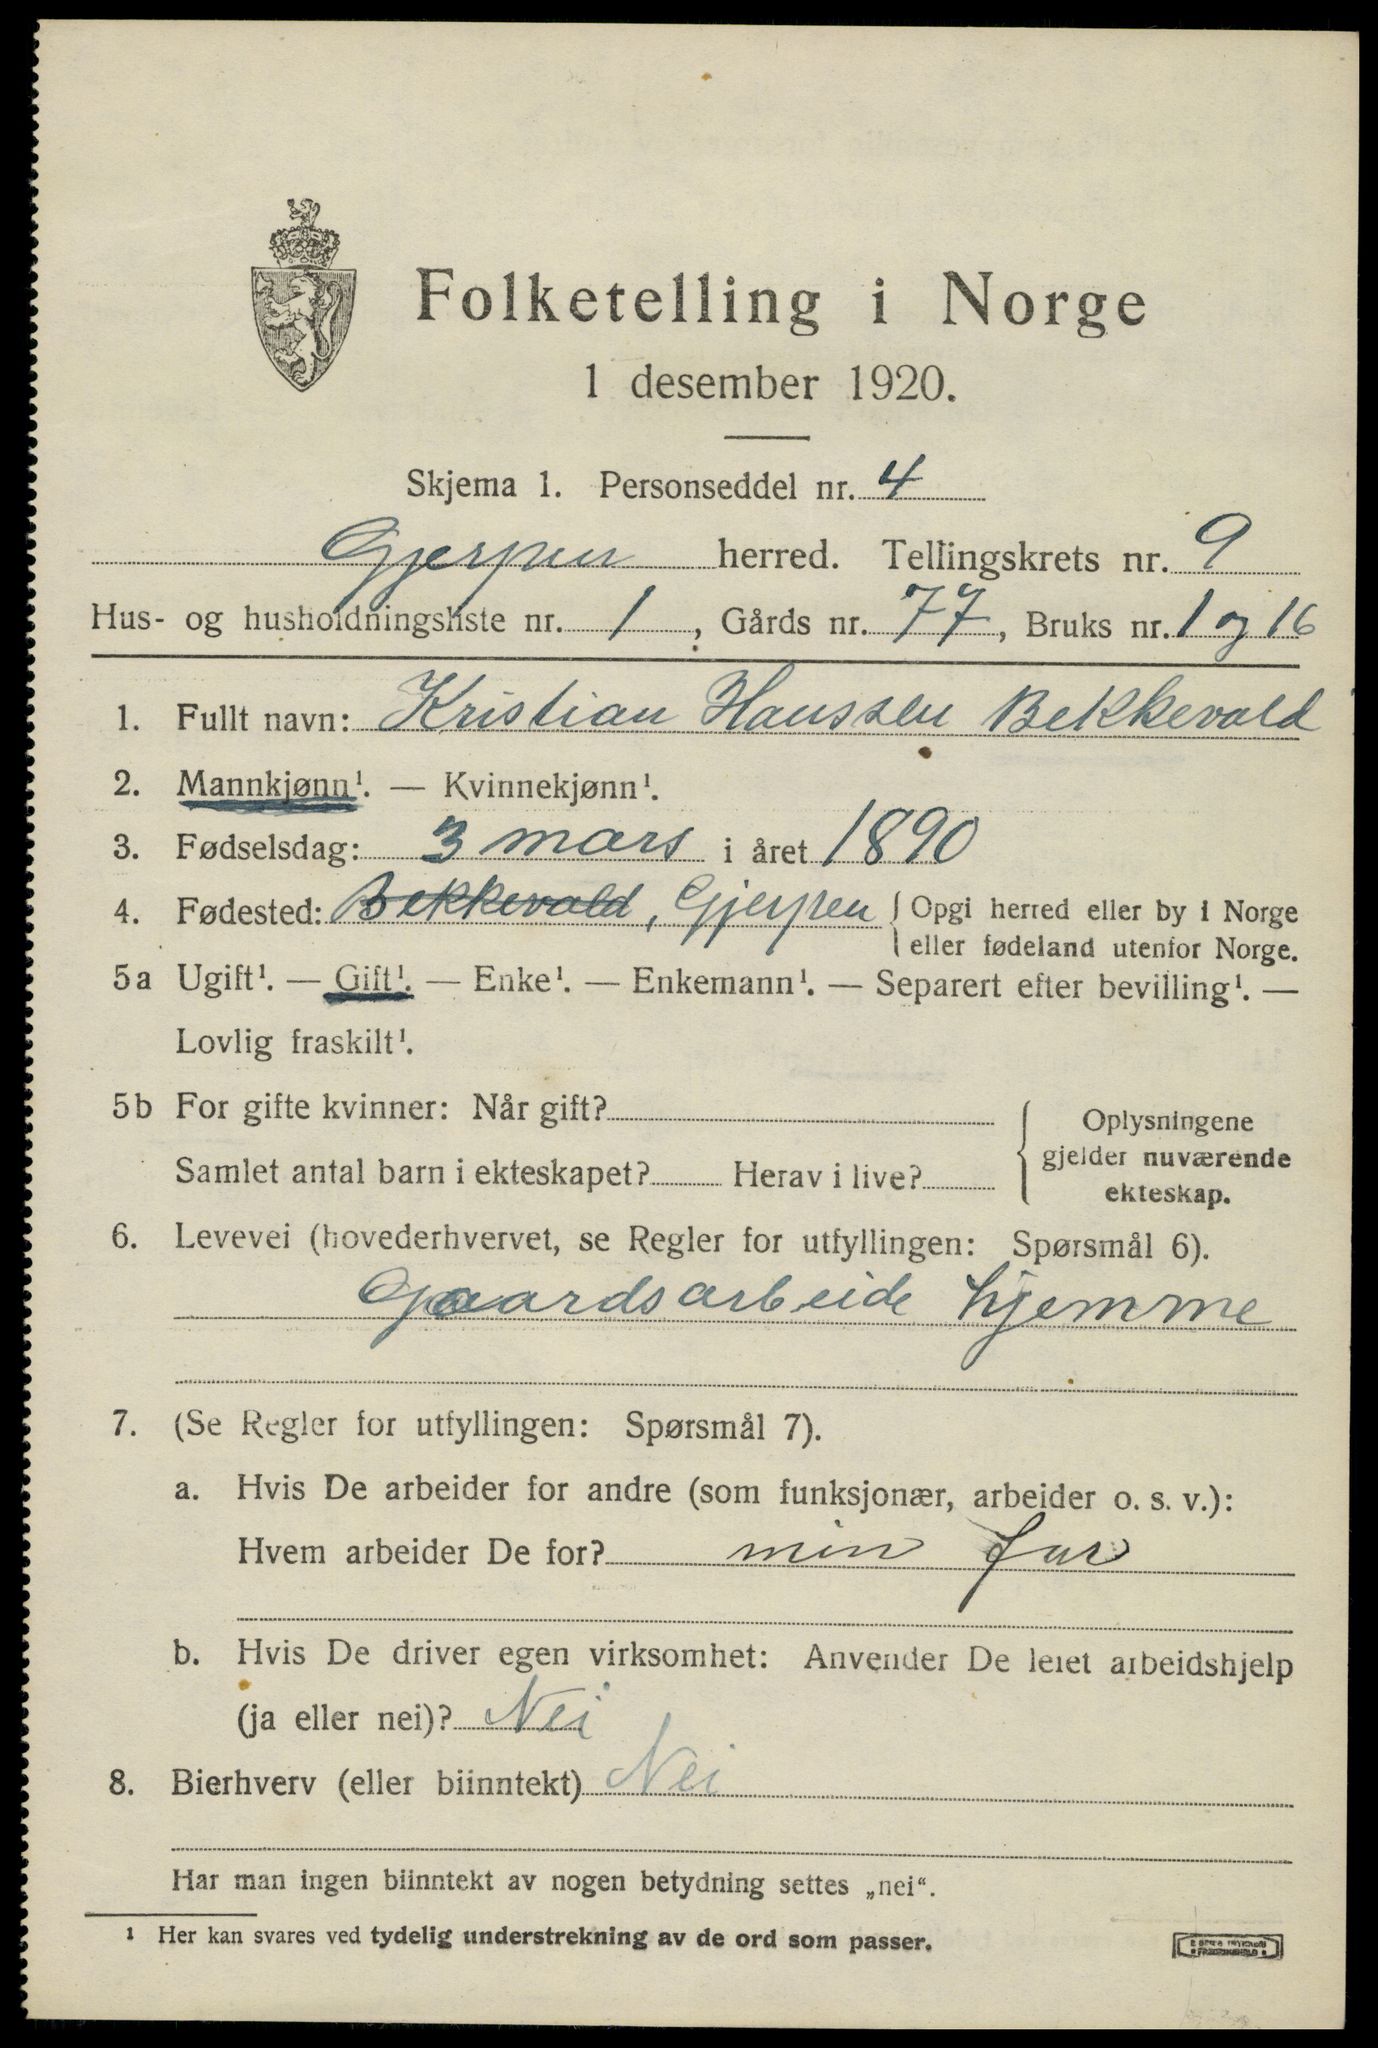 Folketelling i Norge
1 desember 1920.
Skjema 1. Personseddel nr. 4
Gjerpen herred. Tellingskrets nr. 9
Hus- og husholdningsliste nr. 1, Gårds nr. 77, Bruks nr. 1 og 16
1. Fullt navn: Kristian Hanssen Bekkevold
2. Mannkjønn¹. — Kvinnekjønn¹.
3. Fødselsdag: 3 mars i året 1890
4. Fødested: Bekkevold, Gjerpen { Opgi herred eller by i Norge
eller fødeland utenfor Norge.
5a Ugift¹. — Gift¹. — Enke¹. — Enkemann¹. — Separert efter bevilling¹. —
Lovlig fraskilt¹.
5b For gifte kvinner: Når gift?
Samlet antal barn i ekteskapet? Herav i live?
Oplysningene
gjelder nuværende
ekteskap.
6. Levevei (hovederhvervet, se Regler for utfyllingen: Spørsmål 6).
Gaardsarbeide hjemme
7. (Se Regler for utfyllingen: Spørsmål 7).
a. Hvis De arbeider for andre (som funksjonær, arbeider o. s. v.):
Hvem arbeider De for? min far
b. Hvis De driver egen virksomhet: Anvender De leiet arbeidshjelp
(ja eller nei)? Nei
8. Bierhverv (eller biinntekt) Nei
Har man ingen biinntekt av nogen betydning settes „nei“.
¹ Her kan svares ved tydelig understrekning av de ord som passer.